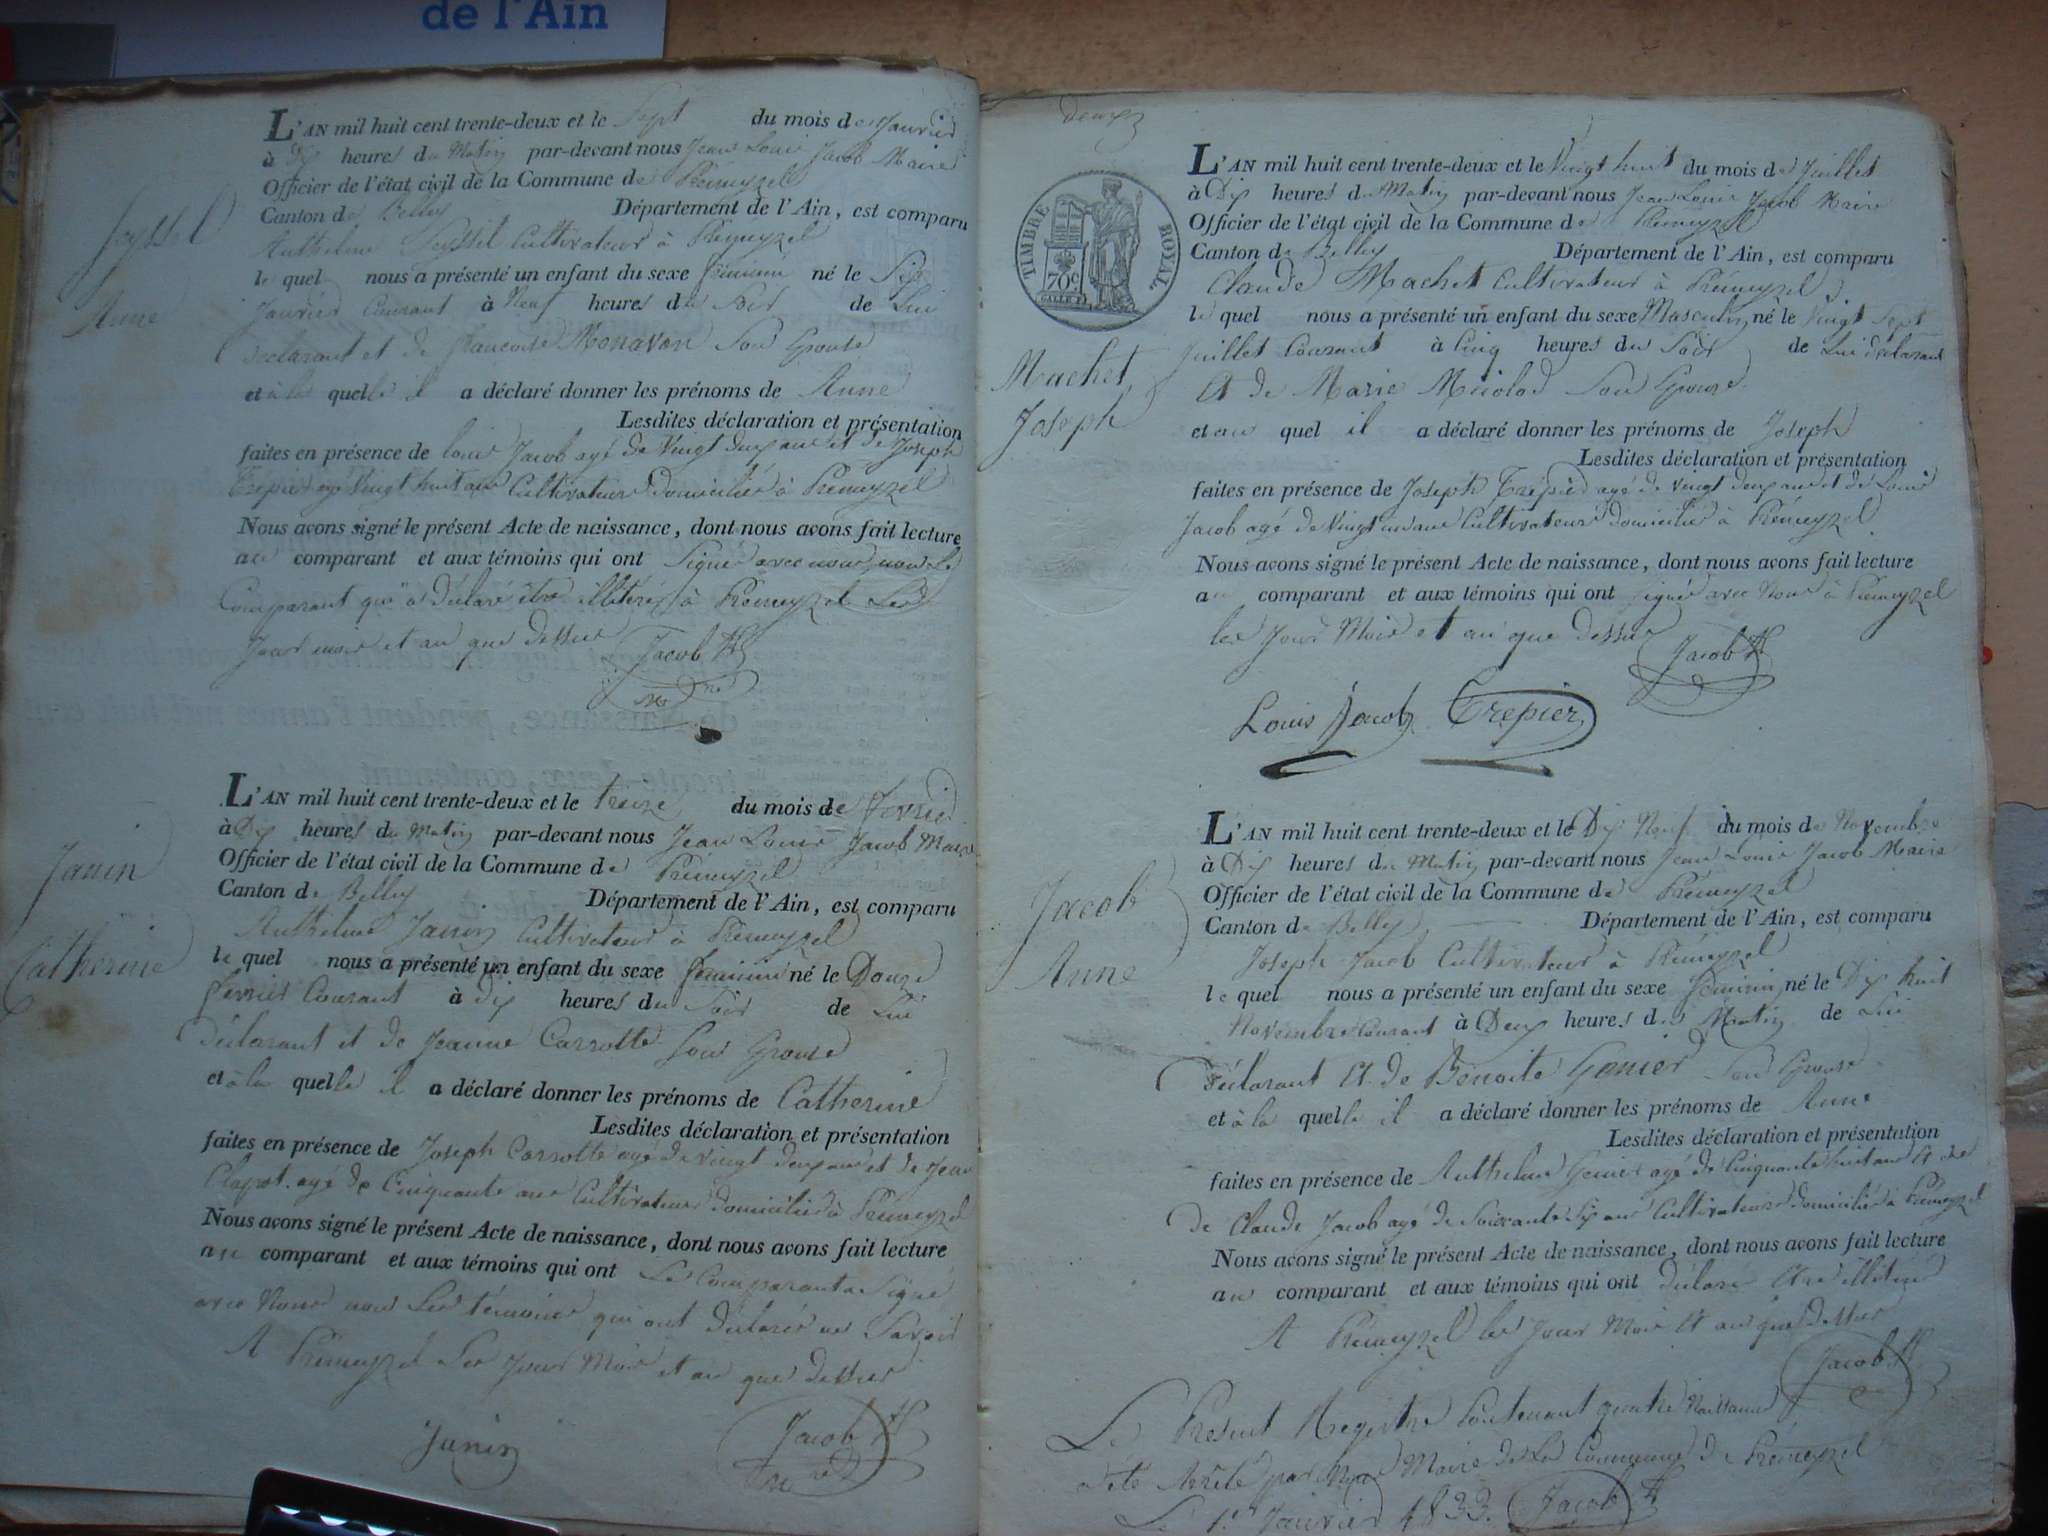 de l'Ain
Seyssel
Anne
L'AN mil huit cent trente-deux et le Sept du mois de Janvier
à Dix heures du Matin par-devant nous Jean Louis Jacob Maire
Officier de l'état civil de la Commune de Prémeyzel
Canton de Belley Département de l'Ain, est comparu
Anthelme Seyssel Cultivateur à Prémeyzel
le quel nous a présenté un enfant du sexe féminin né le Six
Janvier Courant à Neuf heures du Soir de Lui
déclarant et de francoise Monavon Son Epouse
et à la quelle il a déclaré donner les prénoms de Anne
Lesdites déclaration et présentation
faites en présence de louis Jacob agé de Vingt deux ans et de Joseph
Trepier agé Vingt huit ans Cultivateurs domiciliés à Prémeyzel
Nous avons signé le présent Acte de naissance, dont nous avons fait lecture
au comparant et aux témoins qui ont Signé avec nous, non le
Comparant qui a déclaré être illitéré, à Prémeyzel les
Jour mois et an que dessus Jacob
Janin
Catherine
L'AN mil huit cent trente-deux et le treize du mois de Fevrier
à Dix heures du Matin par-devant nous Jean Louis Jacob Maire
Officier de l'état civil de la Commune de Prémeyzel
Canton de Belley Département de l'Ain, est comparu
Anthelme Janin Cultivateur à Prémeyzel
le quel nous a présenté un enfant du sexe feminin né le Douze
fevrier Courant à Dix heures du Soir de Lui
déclarant et de Jeanne Carrotte Son Epouse
et à la quelle il a déclaré donner les prénoms de Catherine
Lesdites déclaration et présentation
faites en présence de Joseph Carrotte agé de Vingt deux ans et de Jean
Clapot agé de Cinquante ans Cultivateurs domiciliés à Prémeyzel
Nous avons signé le présent Acte de naissance, dont nous avons fait lecture
au comparant et aux témoins qui ont Le Comparant a Signé
avec Nous non Les témoins qui ont déclaré ne Savoir
A Prémeyzel Les Jour Mois et an que dessus
Janin Jacob
deux
TIMBRE ROYAL
70c
Machet
Joseph
L'AN mil huit cent trente-deux et le Vingt huit du mois de Juillet
à Dix heures du Matin par-devant nous Jean Louis Jacob Maire
Officier de l'état civil de la Commune de Prémeyzel
Canton de Belley Département de l'Ain, est comparu
Claude Machet Cultivateur à Prémeyzel
le quel nous a présenté un enfant du sexe Masculin né le Vingt Sept
Juillet Courant à Cinq heures du Soir de Lui déclarant
Et de Marie Miolad Son Epouse
et au quel il a déclaré donner les prénoms de Joseph
Lesdites déclaration et présentation
faites en présence de Joseph Trépier agé de Vingt deux ans et de Louis
Jacob agé de Vingt un ans Cultivateurs domiciliés à Prémeyzel
Nous avons signé le présent Acte de naissance, dont nous avons fait lecture
au comparant et aux témoins qui ont signé avec Nous à Prémeyzel
les Jour Mois et an que dessus Jacob
Louis Jacob Trepier
Jacob
Anne
L'AN mil huit cent trente-deux et le Dix Neuf du mois de Novembre
à Dix heures du Matin par-devant nous Jean Louis Jacob Maire
Officier de l'état civil de la Commune de Prémeyzel
Canton de Belley Département de l'Ain, est comparu
Joseph Jacob Cultivateur à Prémeyzel
le quel nous a présenté un enfant du sexe feminin né le Dix huit
Novembre Courant à Deux heures du Matin de Lui
déclarant Et de Benoite Gonier Son Epouse
et à la quelle il a déclaré donner les prénoms de Anne
Lesdites déclaration et présentation
faites en présence de Anthelme Genier agé de Cinquante huit ans Et de
de Claude Jacob agé de Soixante Six ans Cultivateurs domiciliés à Prémeyzel
Nous avons signé le présent Acte de naissance, dont nous avons fait lecture
au comparant et aux témoins qui ont déclaré Etre illitéré
A Prémeyzel les Jour Mois Et an que dessus
Jacob
Le Présent Registre Contenant quatre Naissances
a été Arrêté par Nous Maire de La Commune de Prémeyzel
Le 1er Janvier 1833. Jacob